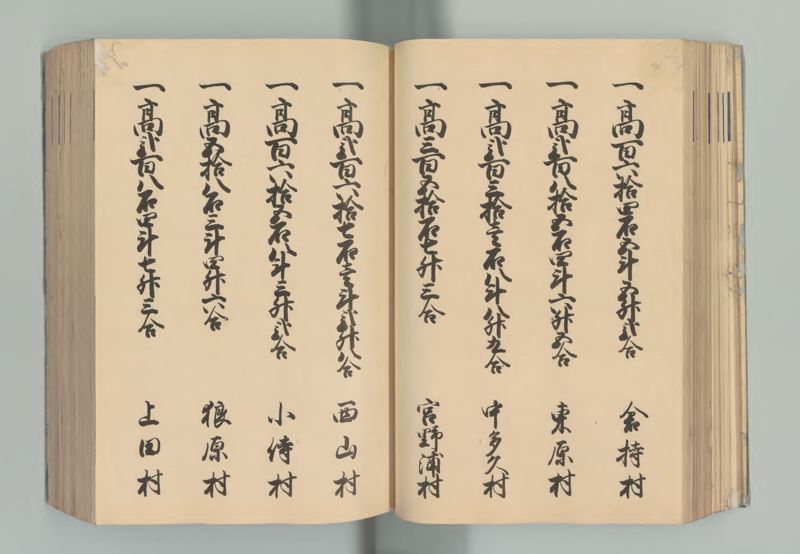 一高百六拾四石五斗五升弐合 倉持村
一高弐百八拾五石四斗六升五合 東原村
一高弐百三拾壱石八斗八升九合 中多久村
一高三百五拾石七升三合 宮野浦村
一高弐百六拾七石壱斗弐升八合 西山村
一高百六拾五石八斗三升弐合 小侍村
一高五拾八石三斗四升六合 狼原村
一高弐百八石四斗七升三合 上田村